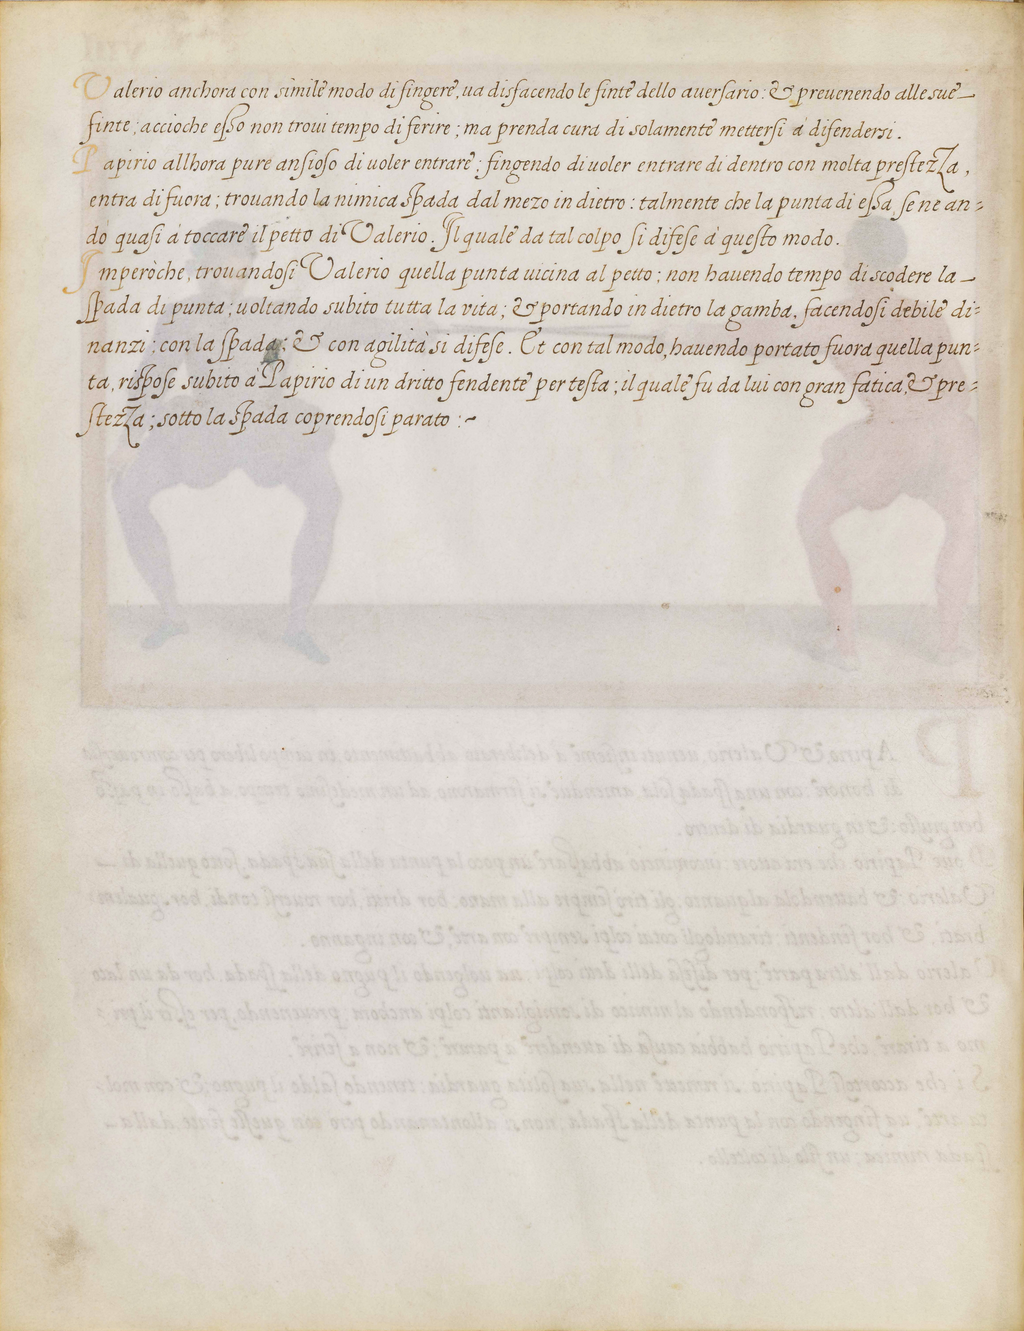 Valerio anchora con simile modo di fingere, ua disfacendo le finte dello auersario: & preuenendo alle sue
finte; accioche esso non troui tempo di ferire; ma prenda cura di solamente mettersi à difendersi.
Papirio allhora pure ansioso di uoler entrare; fingendo di uoler entrare di dentro con molta prestezza,
entra di fuora; trouando la nimica spada dal mezo in dietro: talmente che la punta di essa se ne an-
dò quasi à toccare il petto di Valerio. Il quale da tal colpo si difese à questo modo.
Imperòche, trouandosi Valerio quella punta uicina al petto; non hauendo tempo di scodere la
spada di punta; uoltando subito tutta la vita; & portando in dietro la gamba, facendosi debile di-
nanzi: con la spada; & con agilità si difese. Et con tal modo, hauendo portato fuora quella pun-
ta, rispose subito à Papirio di un dritto fendente per testa; il quale fu da lui con gran fatica, & pre-
stezza; sotto la spada coprendosi parato:~